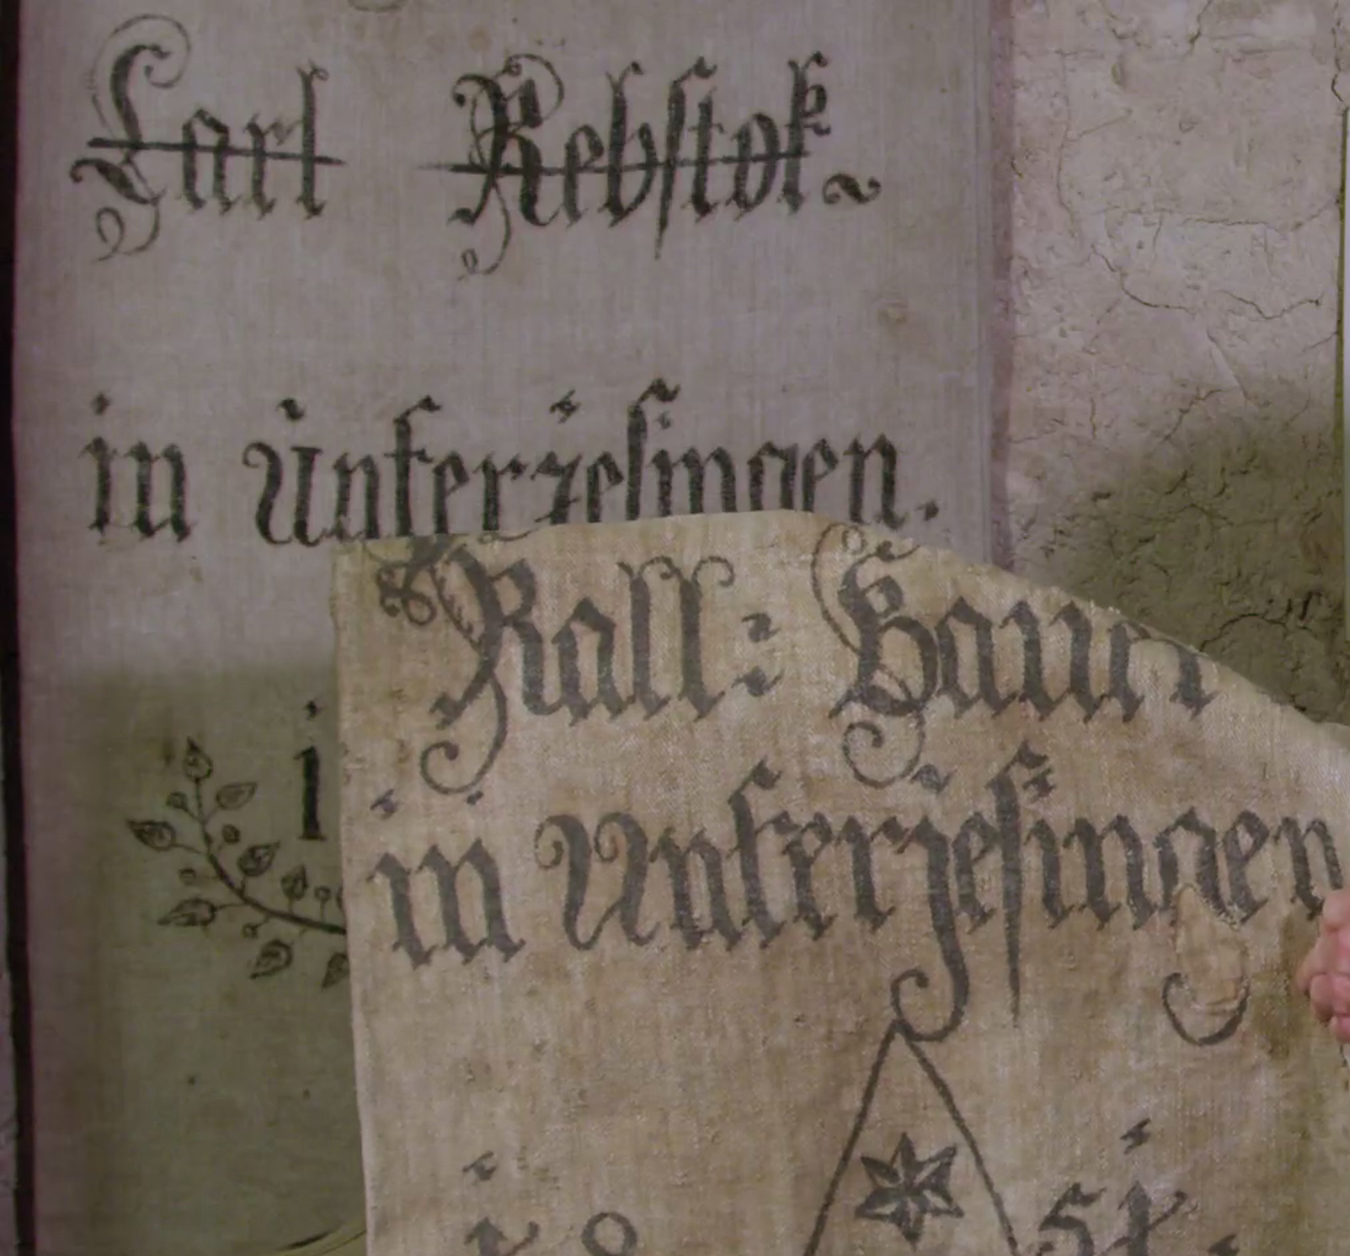 Carl Rebstok
in Unterjesingen.
i
Rall: Hauer
in Unterjesingen
i 8 5 4